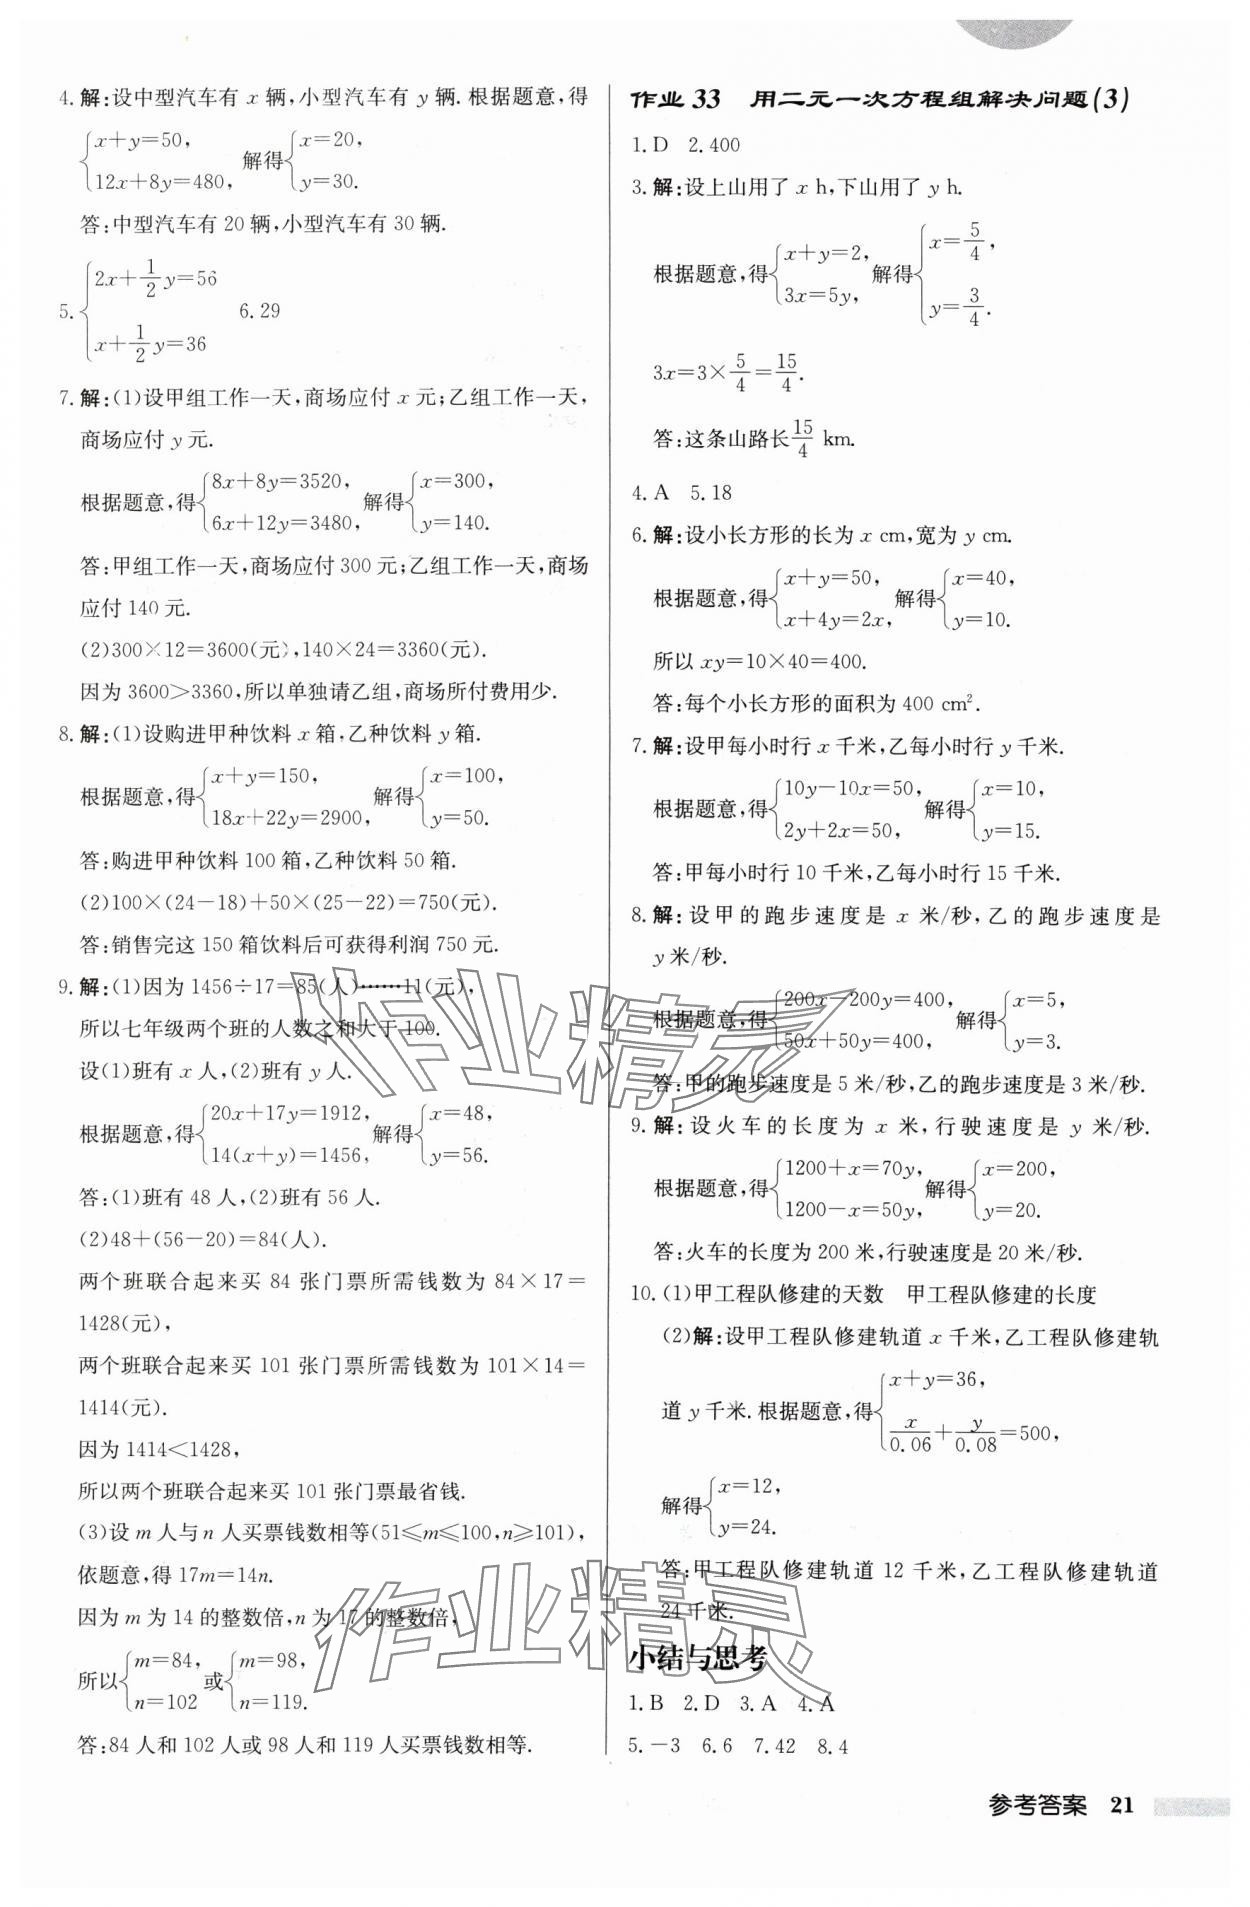 4. 解:设中型汽车有 x 辆,小型汽车有 y 辆. 根据题意,得
{x+y=50, 12x+8y=480, 解得{x=20, y=30.
答:中型汽车有 20 辆,小型汽车有 30 辆.
5. {2x+1/2y=56 x+1/2y=36 6. 29
7. 解:(1)设甲组工作一天,商场应付 x 元;乙组工作一天,
商场应付 y 元.
根据题意,得{8x+8y=3520, 6x+12y=3480, 解得{x=300, y=140.
答:甲组工作一天,商场应付 300 元;乙组工作一天,商场
应付 140 元.
(2)300×12=3600(元),140×24=3360(元).
因为 3600>3360,所以单独请乙组,商场所付费用少.
8. 解:(1)设购进甲种饮料 x 箱,乙种饮料 y 箱.
根据题意,得{x+y=150, 18x+22y=2900, 解得{x=100, y=50.
答:购进甲种饮料 100 箱,乙种饮料 50 箱.
(2)100×(24-18)+50×(25-22)=750(元).
答:销售完这 150 箱饮料后可获得利润 750 元.
9. 解:(1)因为 1456÷17=85(人)……11(元),
所以七年级两个班的人数之和大于 100.
设(1)班有 x 人,(2)班有 y 人.
根据题意,得{20x+17y=1912, 14(x+y)=1456, 解得{x=48, y=56.
答:(1)班有 48 人,(2)班有 56 人.
(2)48+(56-20)=84(人).
两个班联合起来买 84 张门票所需钱数为 84×17=
1428(元),
两个班联合起来买 101 张门票所需钱数为 101×14=
1414(元).
因为 1414<1428,
所以两个班联合起来买 101 张门票最省钱.
(3)设 m 人与 n 人买票钱数相等(51≤m≤100,n≥101),
依题意,得 17m=14n.
因为 m 为 14 的整数倍,n 为 17 的整数倍,
所以{m=84, n=102 或{m=98, n=119.
答:84 人和 102 人或 98 人和 119 人买票钱数相等.
作业 33 用二元一次方程组解决问题(3)
1. D 2. 400
3. 解:设上山用了 x h,下山用了 y h.
根据题意,得{x+y=2, 3x=5y, 解得{x=5/4, y=3/4.
3x=3×5/4=15/4.
答:这条山路长15/4 km.
4. A 5. 18
6. 解:设小长方形的长为 x cm,宽为 y cm.
根据题意,得{x+y=50, x+4y=2x, 解得{x=40, y=10.
所以 xy=10×40=400.
答:每个小长方形的面积为 400 cm².
7. 解:设甲每小时行 x 千米,乙每小时行 y 千米.
根据题意,得{10y-10x=50, 2y+2x=50, 解得{x=10, y=15.
答:甲每小时行 10 千米,乙每小时行 15 千米.
8. 解:设甲的跑步速度是 x 米/秒,乙的跑步速度是
y 米/秒.
根据题意,得{200x-200y=400, 50x+50y=400, 解得{x=5, y=3.
答:甲的跑步速度是 5 米/秒,乙的跑步速度是 3 米/秒.
9. 解:设火车的长度为 x 米,行驶速度是 y 米/秒.
根据题意,得{1200+x=70y, 1200-x=50y, 解得{x=200, y=20.
答:火车的长度为 200 米,行驶速度是 20 米/秒.
10. (1)甲工程队修建的天数 甲工程队修建的长度
(2)解:设甲工程队修建轨道 x 千米,乙工程队修建轨
道 y 千米. 根据题意,得{x+y=36, x/0.06+y/0.08=500,
解得{x=12, y=24.
答:甲工程队修建轨道 12 千米,乙工程队修建轨道
24 千米.
小结与思考
1. B 2. D 3. A 4. A
5. -3 6. 6 7. 42 8. 4
参考答案 21
作业精灵
作业精灵